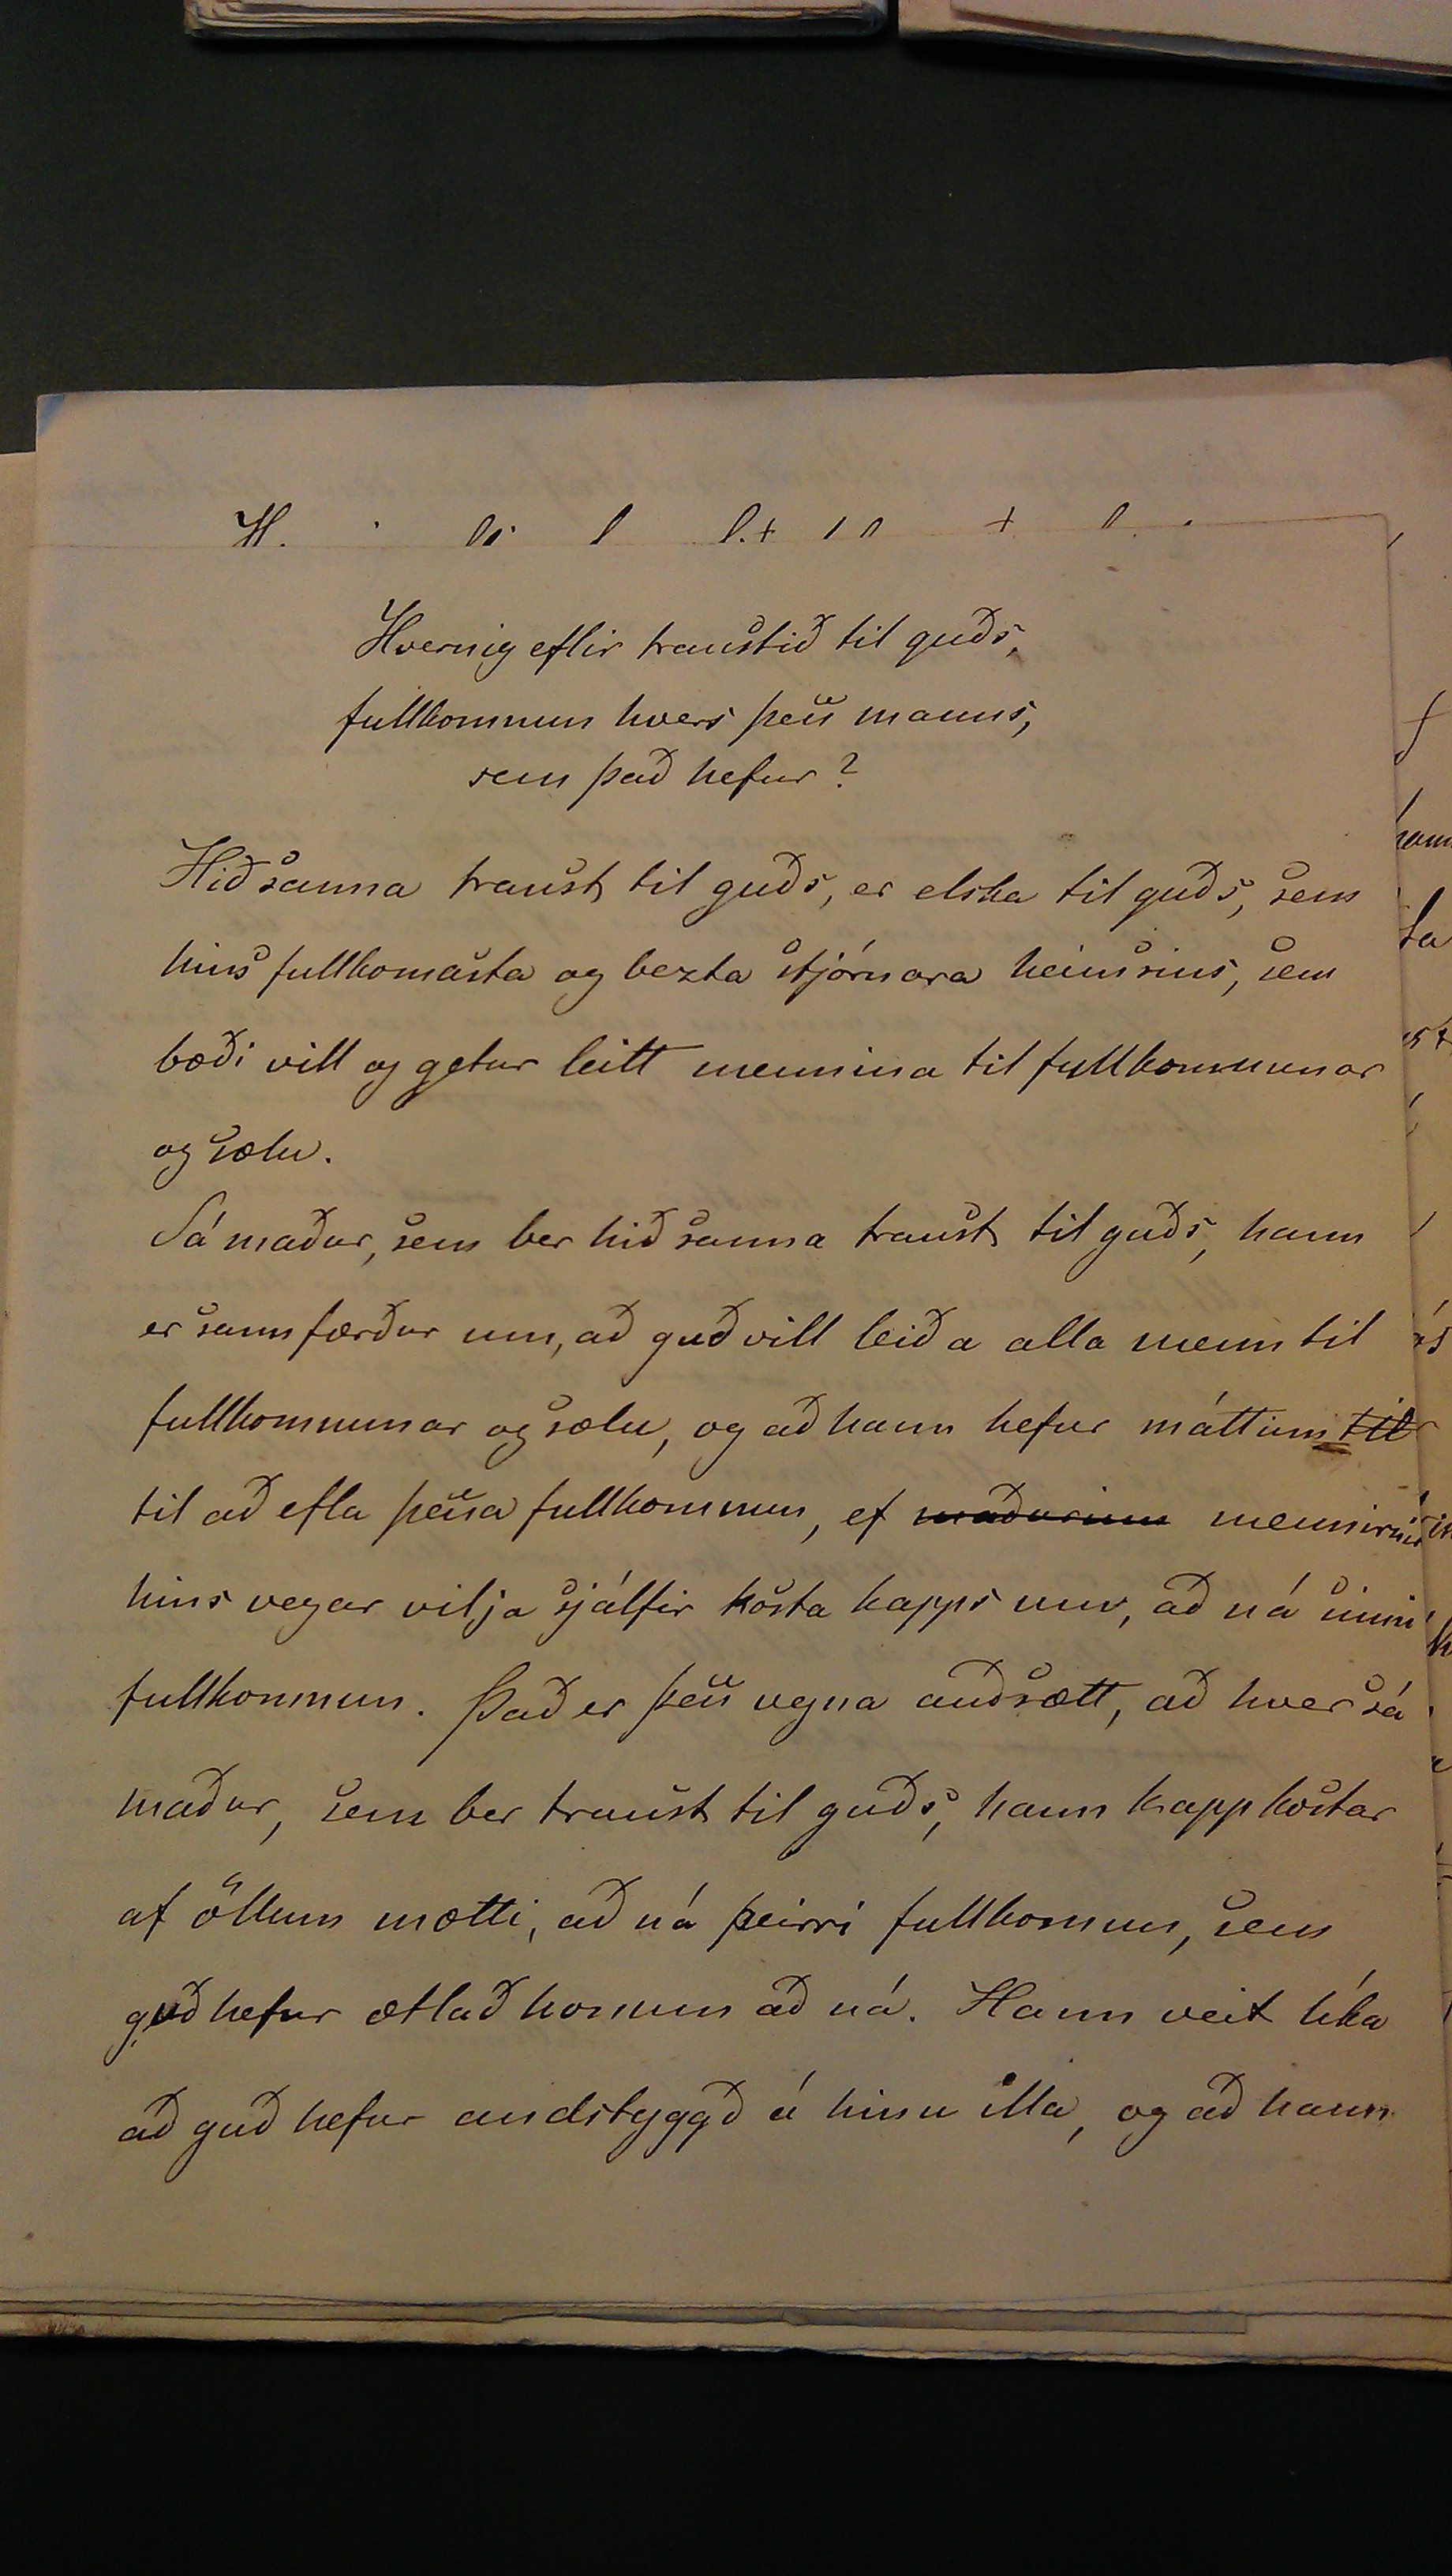 Hvernig eflir traustið til guðs,
fullkomnun hvers þess manns,
sem það hefur?
Hið sanna traust til guðs, er elska til guðs, sem
hins fullkomasta og bezta stjórnara heimsins, sem
bæði vill og getur leitt mennina til fullkomnunar
og sælu.
Sá maður, sem ber hið sanna traust til guðs, hann
er sannfærður um, að guð vill leiða alla menn til
fullkomnunar og sælu, og að hann hefur máttinn til
til að efla þessa fullkomnun, ef maðurinn mennirnir
hins vegar vilja sjálfir kosta kapps um, að ná sinni
fullkomnun. Það er þess vegna auðsætt, að hver sá
maður, sem ber traust til guðs, hann kappkostar
af öllum mætti, að ná þeirri fullkomnun, sem
guð hefur ætlað honum að ná. Hann veit líka
að guð hefur andstyggð á hinu illa, og að hann